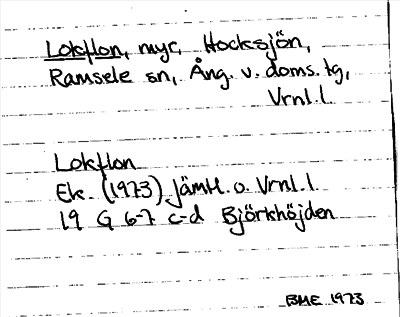 Lokflon, myr, Hocksjön,
Ramsele sn, Ång. v. doms. tg,
Vrnl. l.
Lokflon
Ek. (1973) Jämtl. o. Vrnl. l.
19 G 6-7 c-d Björkhöjden
BME 1973